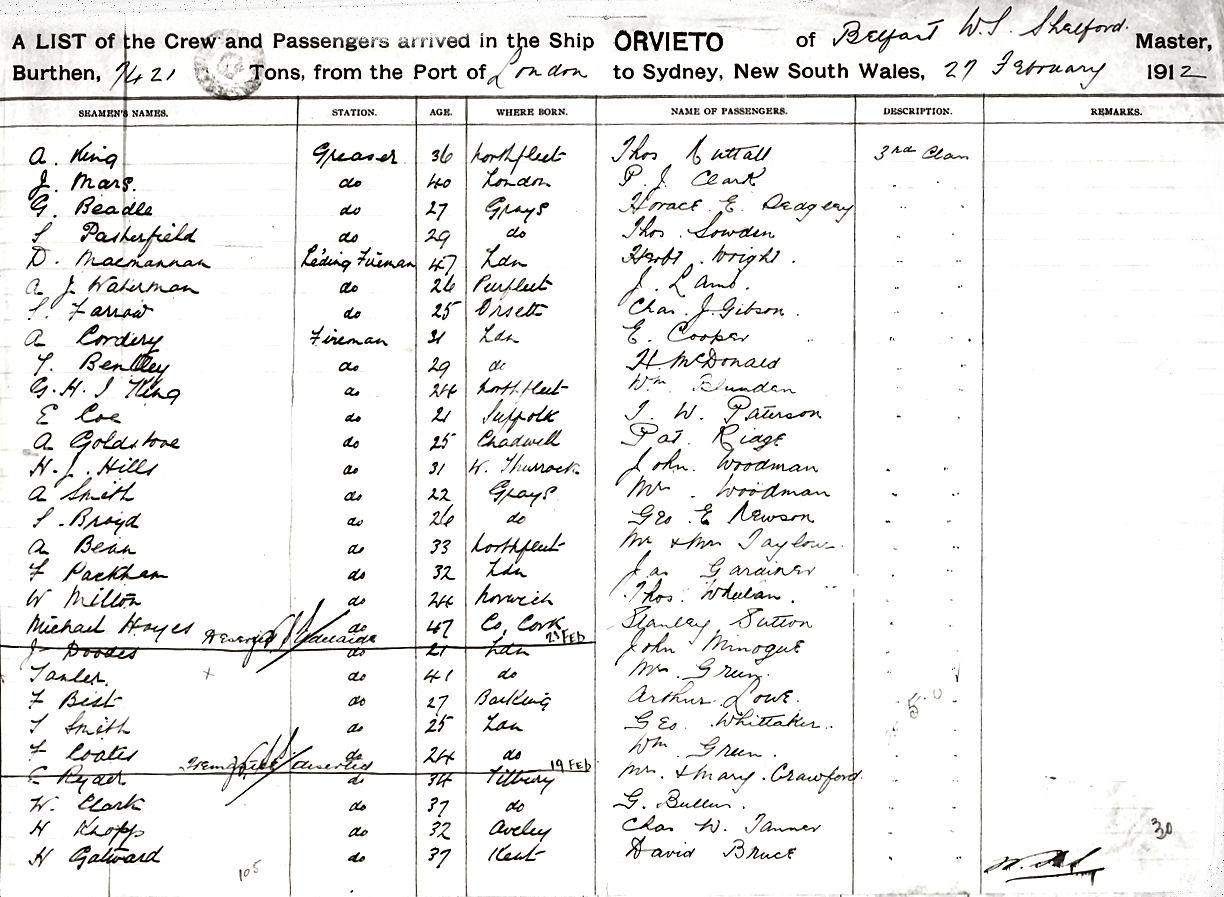 A LIST of the Crew and Passengers arrived in the Ship ORVIETO of Belfast W.S. Shelford Master,
Burthen, 7421 Tons, from the Port of London to Sydney, New South Wales, 27 February 1912
SEAMEN'S NAMES. STATION. AGE. WHERE BORN. NAME OF PASSENGERS. DESCRIPTION. REMARKS.
A. King Greaser 36 Northfleet Thos Nuttall 3rd Class
J. Mars. do 40 London P. J. Clark
G. Beadle do 27 Grays Horace E. Sedgley
S Pasterfield do 29 do Thos. Sowden
D. Macmannan Leding Fireman 47 Ldn Herbt Wright.
A J. Waterman do 26 Purfleet J. Lamb.
S. Farrow do 25 Orsett Chas. J. Gibson.
A Cordery Fireman 31 Ldn E. Cooper
T. Bentley do 29 do H. McDonald
G. H. J King do 24 Northfleet Wm Blunden
E Coe do 21 Suffolk J. W. Paterson
A Goldstove do 25 Chadwell Pat. Ridge
H. J. Hills do 31 W. Thurrock John. Woodman
A Smith do 22 Grays Mrs. Woodman
S. Broyd do 26 do Geo E Newson
A Bean do 33 Northfleet Mr & Mrs Taylow.
F Packham do 32 Ldn Jas Gardiner
W Milton do 24 Norwich Thos. Whelan.
Michael Hayes do 47 Co, Cork Stanley Sutton
Deserted Adelaide 23 FEB
J Doodes do 21 Ldn John Minogue
Tanler. do 41 do Mrs. Green.
F Bist do 27 Barking Arthur Lowe.
T Smith do 25 Ldn Geo. Whittaker.
F Coates do 24 do Wm. Green.
Fremantle deserted 19 FEB
E Ryder do 34 Tilbury Mrs. & Mary. Crawford
W. Clark do 37 do G. Bullen.
H Knopp do 32 Aveley Chas W. Tanner 30
H Gatward do 37 Kent David Bruce
105